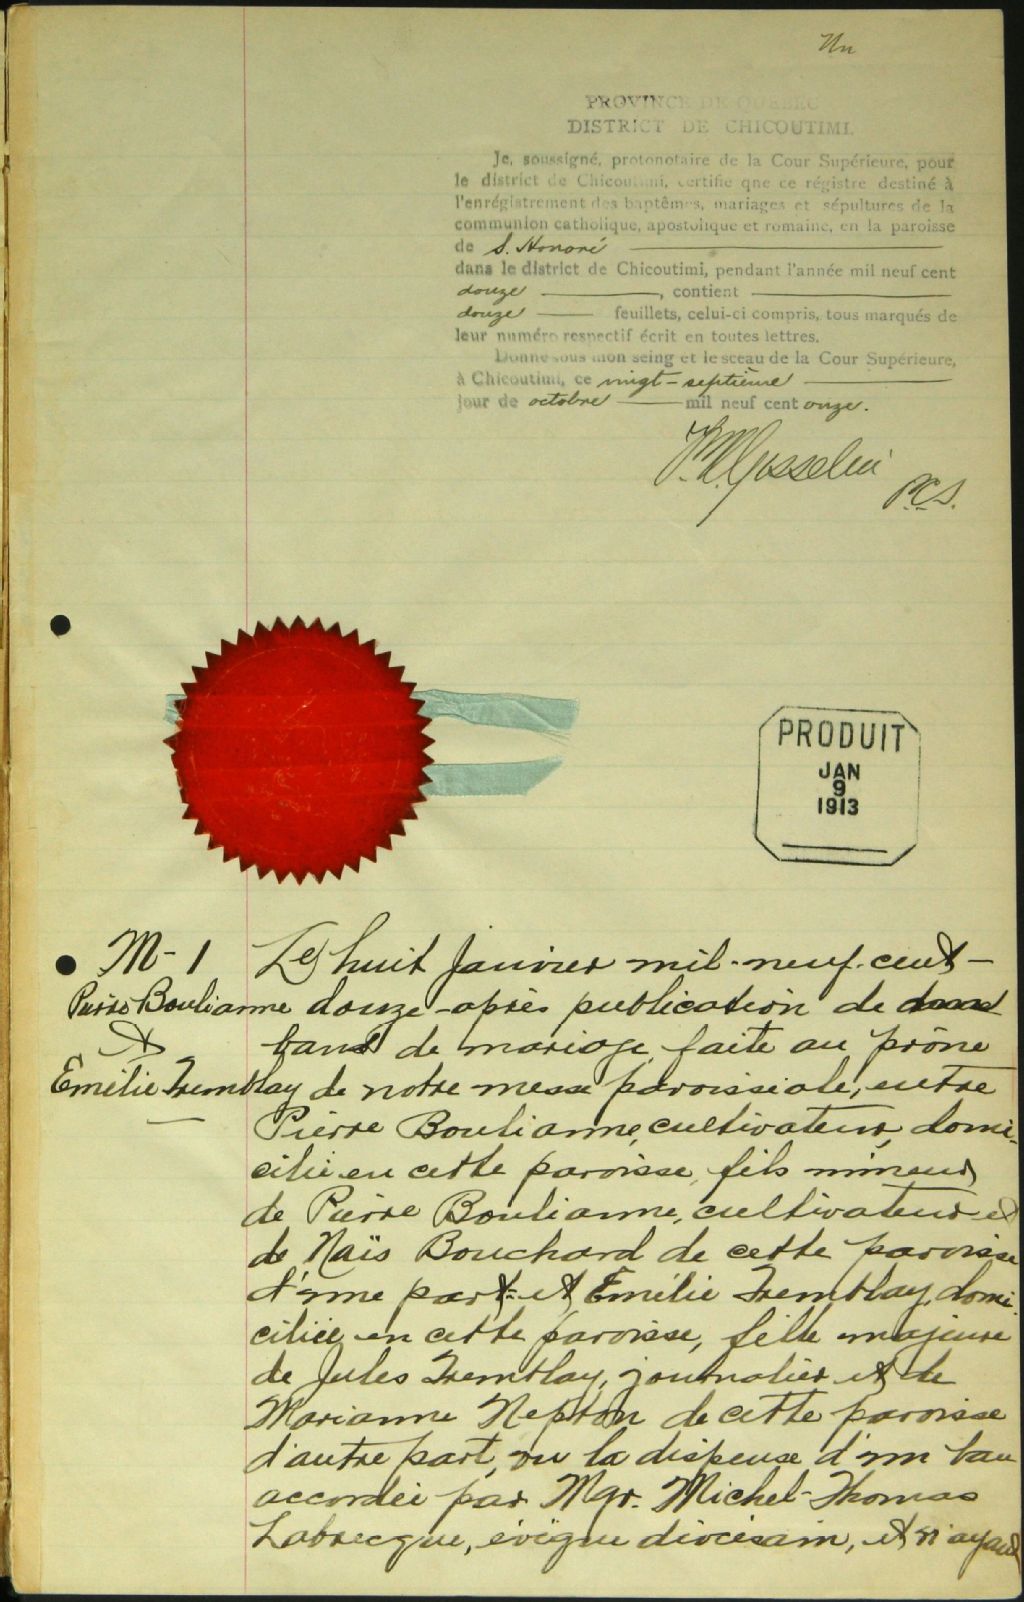 Un
PROVINCE DE QUEBEC
DISTRICT DE CHICOUTIMI.
Je, soussigné, protonotaire de la Cour Supérieure, pour
le district de Chicoutimi, certifie qne ce régistre destiné à
l'enrégistrement des baptêmes, mariages et sépultures de la
communion catholique, apostolique et romaine, en la paroisse
de S. Honoré
dans le district de Chicoutimi, pendant l'année mil neuf cent
douze, contient
douze feuillets, celui-ci compris, tous marqués de
leur numéro respectif écrit en toutes lettres.
Donné sous mon seing et le sceau de la Cour Supérieure,
à Chicoutimi, ce vingt-septième
jour de octobre mil neuf cent onze.
Gosselin
P.C.S.
PRODUIT
JAN
9
1913
M-1 Le huit janvier mil-neuf-cent-
Pierre Boulianne douze-après publication de
& bans de mariage faite au prône
Émilie Tremblay de notre messe paroissiale, entre
Pierre Boulianne, cultivateur, domi-
cilié en cette paroisse, fils mineur
de Pierre Boulianne, cultivateur et
de Naïs Bouchard de cette paroisse
d'une part et Émilie Tremblay, domi-
ciliée en cette paroisse, fille majeure
de Jules Tremblay, journalier et de
Marianne Nepton de cette paroisse
d'autre part, vu la dispense d'un ban
accordée par Mgr. Michel-Thomas
Labrecque, évêque diocésain, et n'ayant